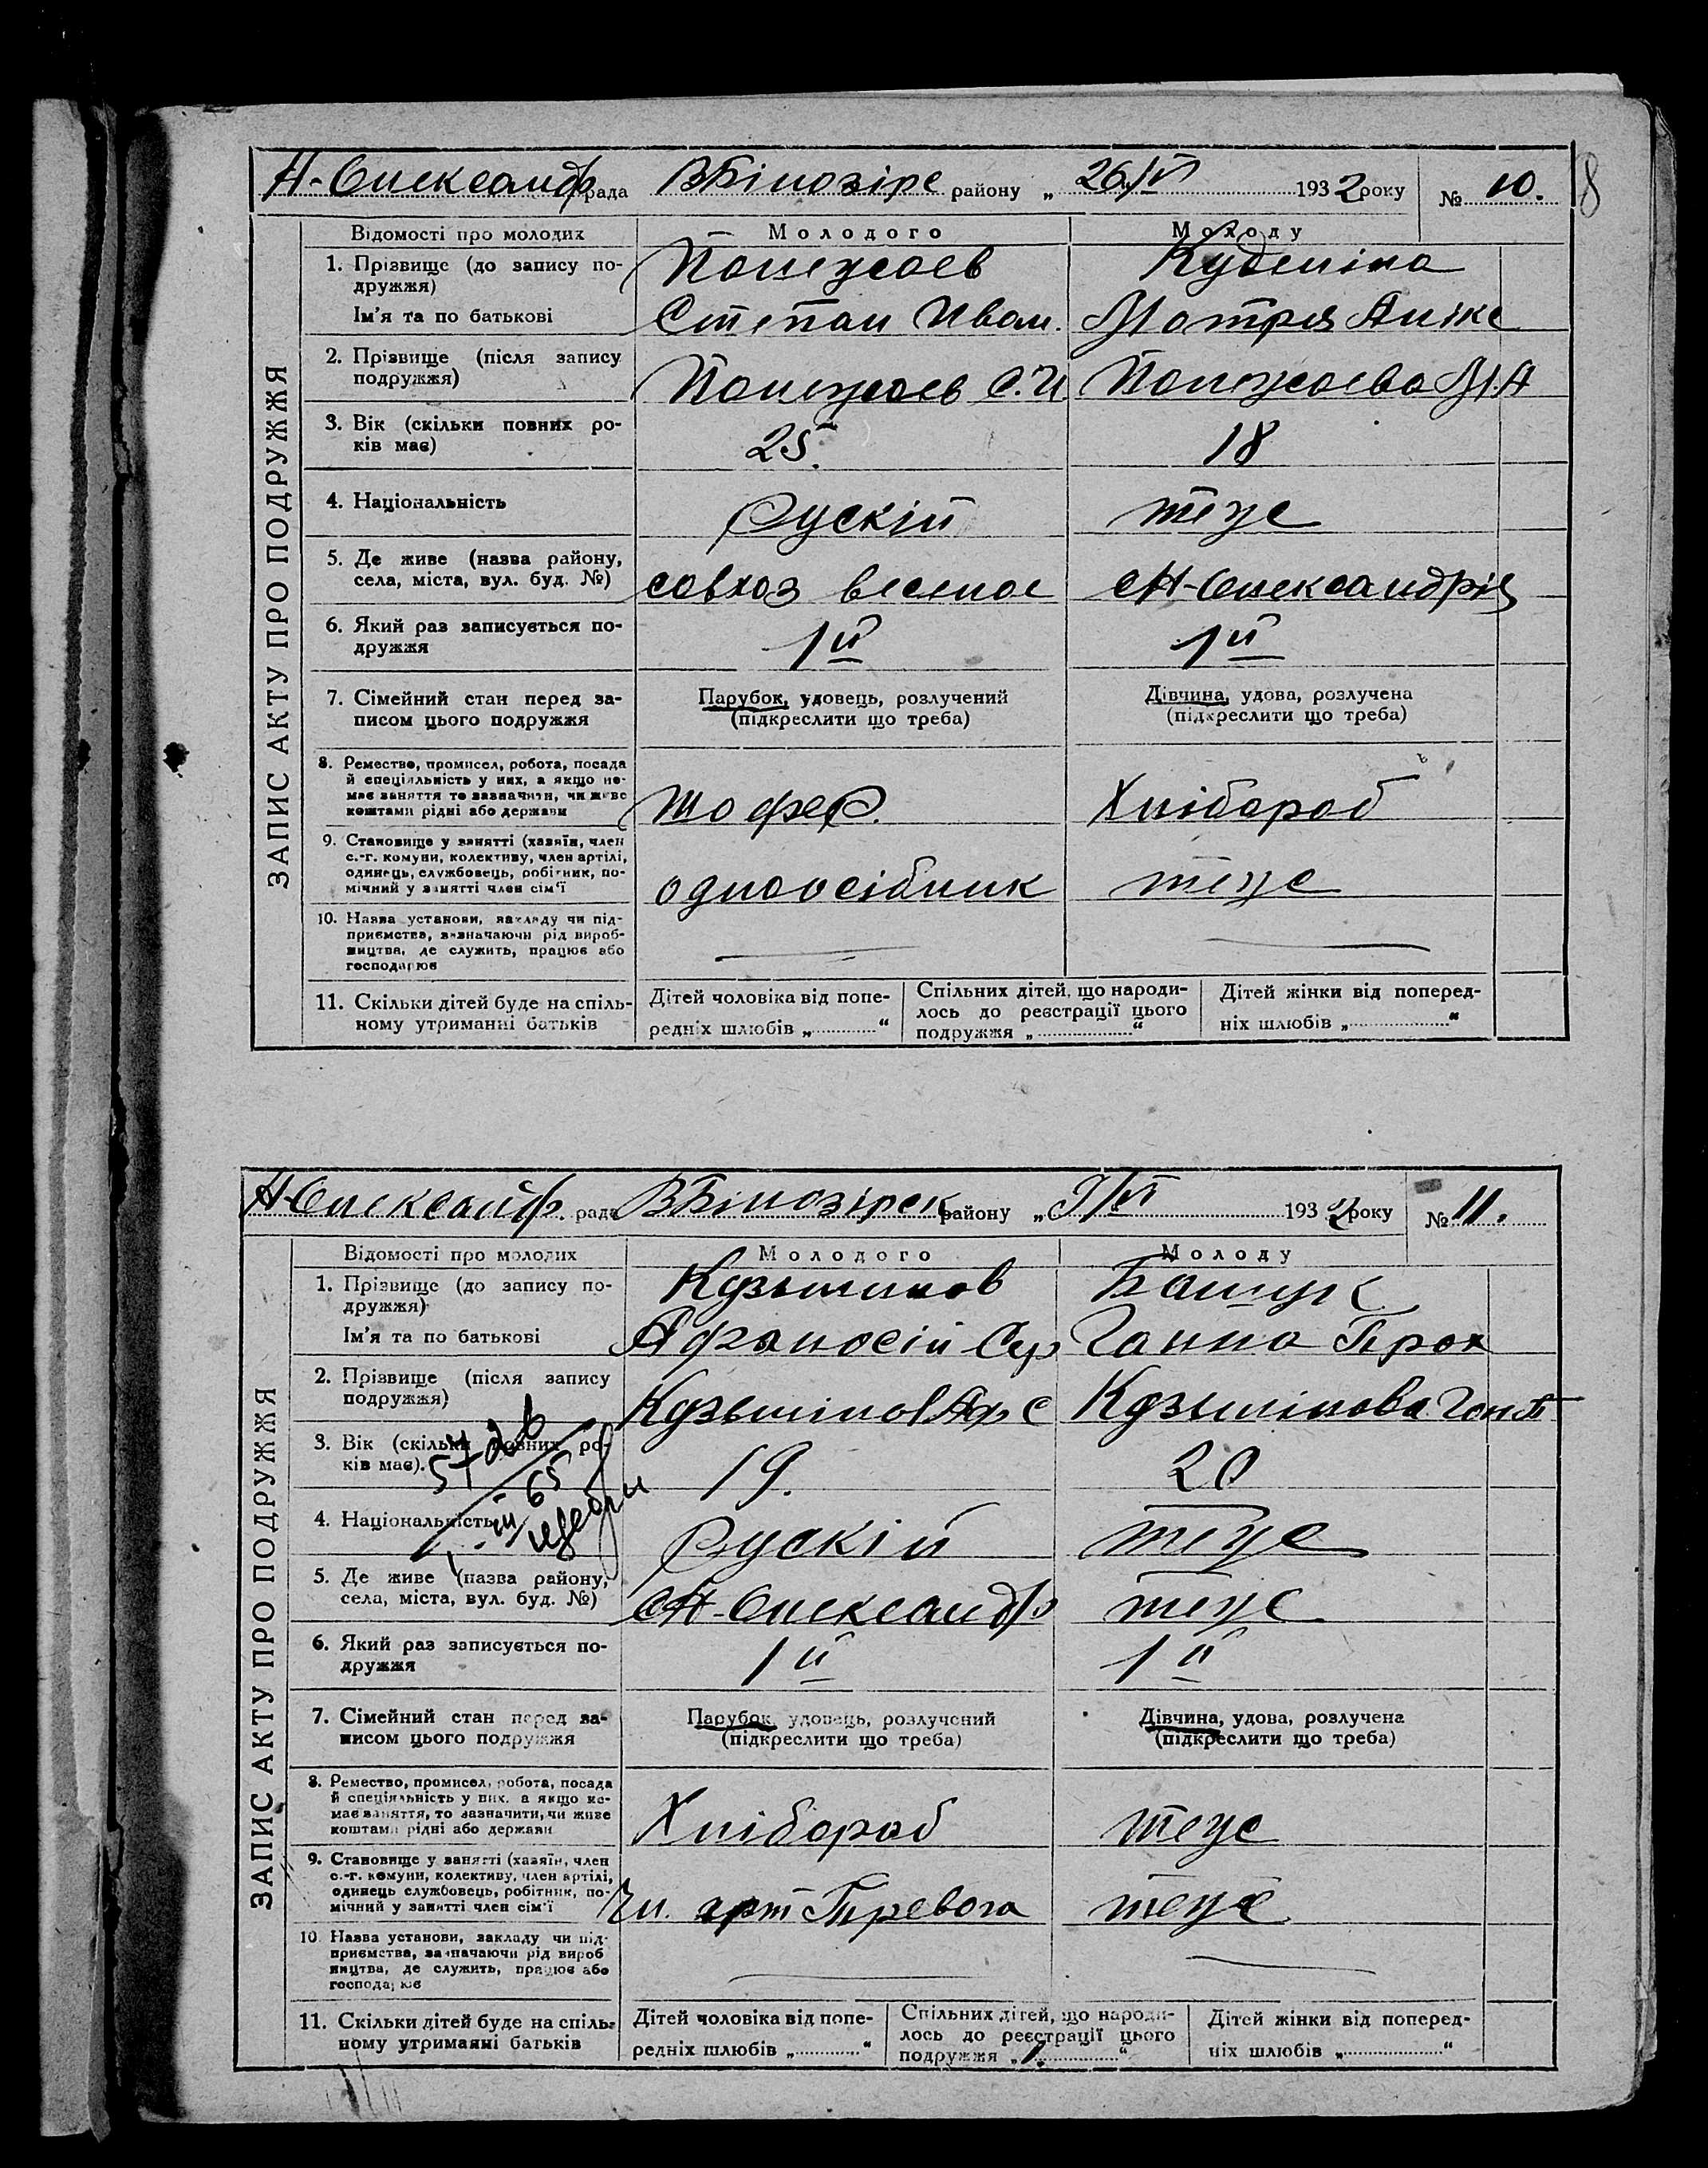 Н-Олександр рада ВБілозірс району „ 26/IV 1932 року № 10.
8
ЗАПИС АКТУ ПРО ПОДРУЖЖЯ
Відомості про молодих Молодого Молоду
1. Прізвище (до запису по-
дружжя)
Полежаев
Ім'я та по батькові Степан Иван. Мотря Аніке
2. Прізвище (після запису
подружжя) Полежаев С.И. Полежаева М.А
3. Вік (скільки повних ро-
ків має) 25. 18
4. Національність Рускій теже
5. Де живе (назва району,
села, міста, вул. буд. №) совхоз веселое с Н-Олександрія
6. Який раз записується по-
дружжя 1й 1й
7. Сімейний стан перед за-
писом цього подружжя
Парубок, удовець, розлучений
(підкреслити що треба)
Дівчина, удова, розлучена
(підкреслити що треба)
8. Ремество, промисел, робота, посада
й спеціяльність у них, а якщо не-
має заняття то зазначити, чи живе
коштами рідні або держави
шофер. Хлібороб
9. Становище у занятті (хазяїн, член
с.-г. комуни, колективу, член артілі,
одинець, службовець, робітник, по-
мічний у занятті член сім'ї
одноосібник теже
10. Назва установи, закладу чи під-
приємства, зазначаючи рід вироб-
ництва, де служить, працює або
господарює
11. Скільки дітей буде на спіль-
ному утриманні батьків
Дітей чоловіка від попе-
редніх шлюбів „ “
Спільних дітей, що народи-
лось до реєстрації цього
подружжя „ “
Дітей жінки від поперед-
ніх шлюбів „ “
Н-Олександр. рада ВБілозірск району „ /VI 1932 року № 11.
ЗАПИС АКТУ ПРО ПОДРУЖЖЯ
Відомості про молодих Молодого Молоду
1. Прізвище (до запису по-
дружжя)
Кузьминов
Ім'я та по батькові Афанасій Сер Ганна Прок
2. Прізвище (після запису
подружжя) Кузьмінов Аф С Кузьмінова Ган П
3. Вік (скільки повних ро-
ків має). 19. 20
4. Національність Рускій теже
5. Де живе (назва району,
села, міста, вул. буд. №) с Н-Олександр теже
6. Який раз записується по-
дружжя 1й 1й
7. Сімейний стан перед за-
писом цього подружжя
Парубок, удовець, розлучений
(підкреслити що треба)
Дівчина, удова, розлучена
(підкреслити що треба)
8. Ремество, промисел, робота, посада
й спеціяльність у них, а якщо не-
має заняття, то зазначити, чи живе
коштами рідні або держави
Хлібороб теже
9. Становище у занятті (хазяїн, член
с.-г. комуни, колективу, член артілі,
одинець службовець, робітник, по-
мічний у занятті член сім'ї
Чл. арт Тревога теже
10. Назва установи, закладу чи під-
приємства, зазначаючи рід вироб
ництва, де служить, працює або
господарює
11. Скільки дітей буде на спіль-
ному утриманні батьків
Дітей чоловіка від попе-
редніх шлюбів „ “
Спільних дітей, що народи-
лось до реєстрації цього
подружжя „ 1. “
Дітей жінки від поперед-
ніх шлюбів „ “